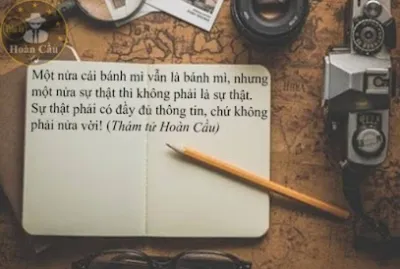 Hoàn Cầu
Một nửa cái bánh mì vẫn là bánh mì, nhưng
một nửa sự thật thì không phải là sự thật.
Sự thật phải có đầy đủ thông tin, chứ không
phải nửa vời! (Thám tử Hoàn Cầu)